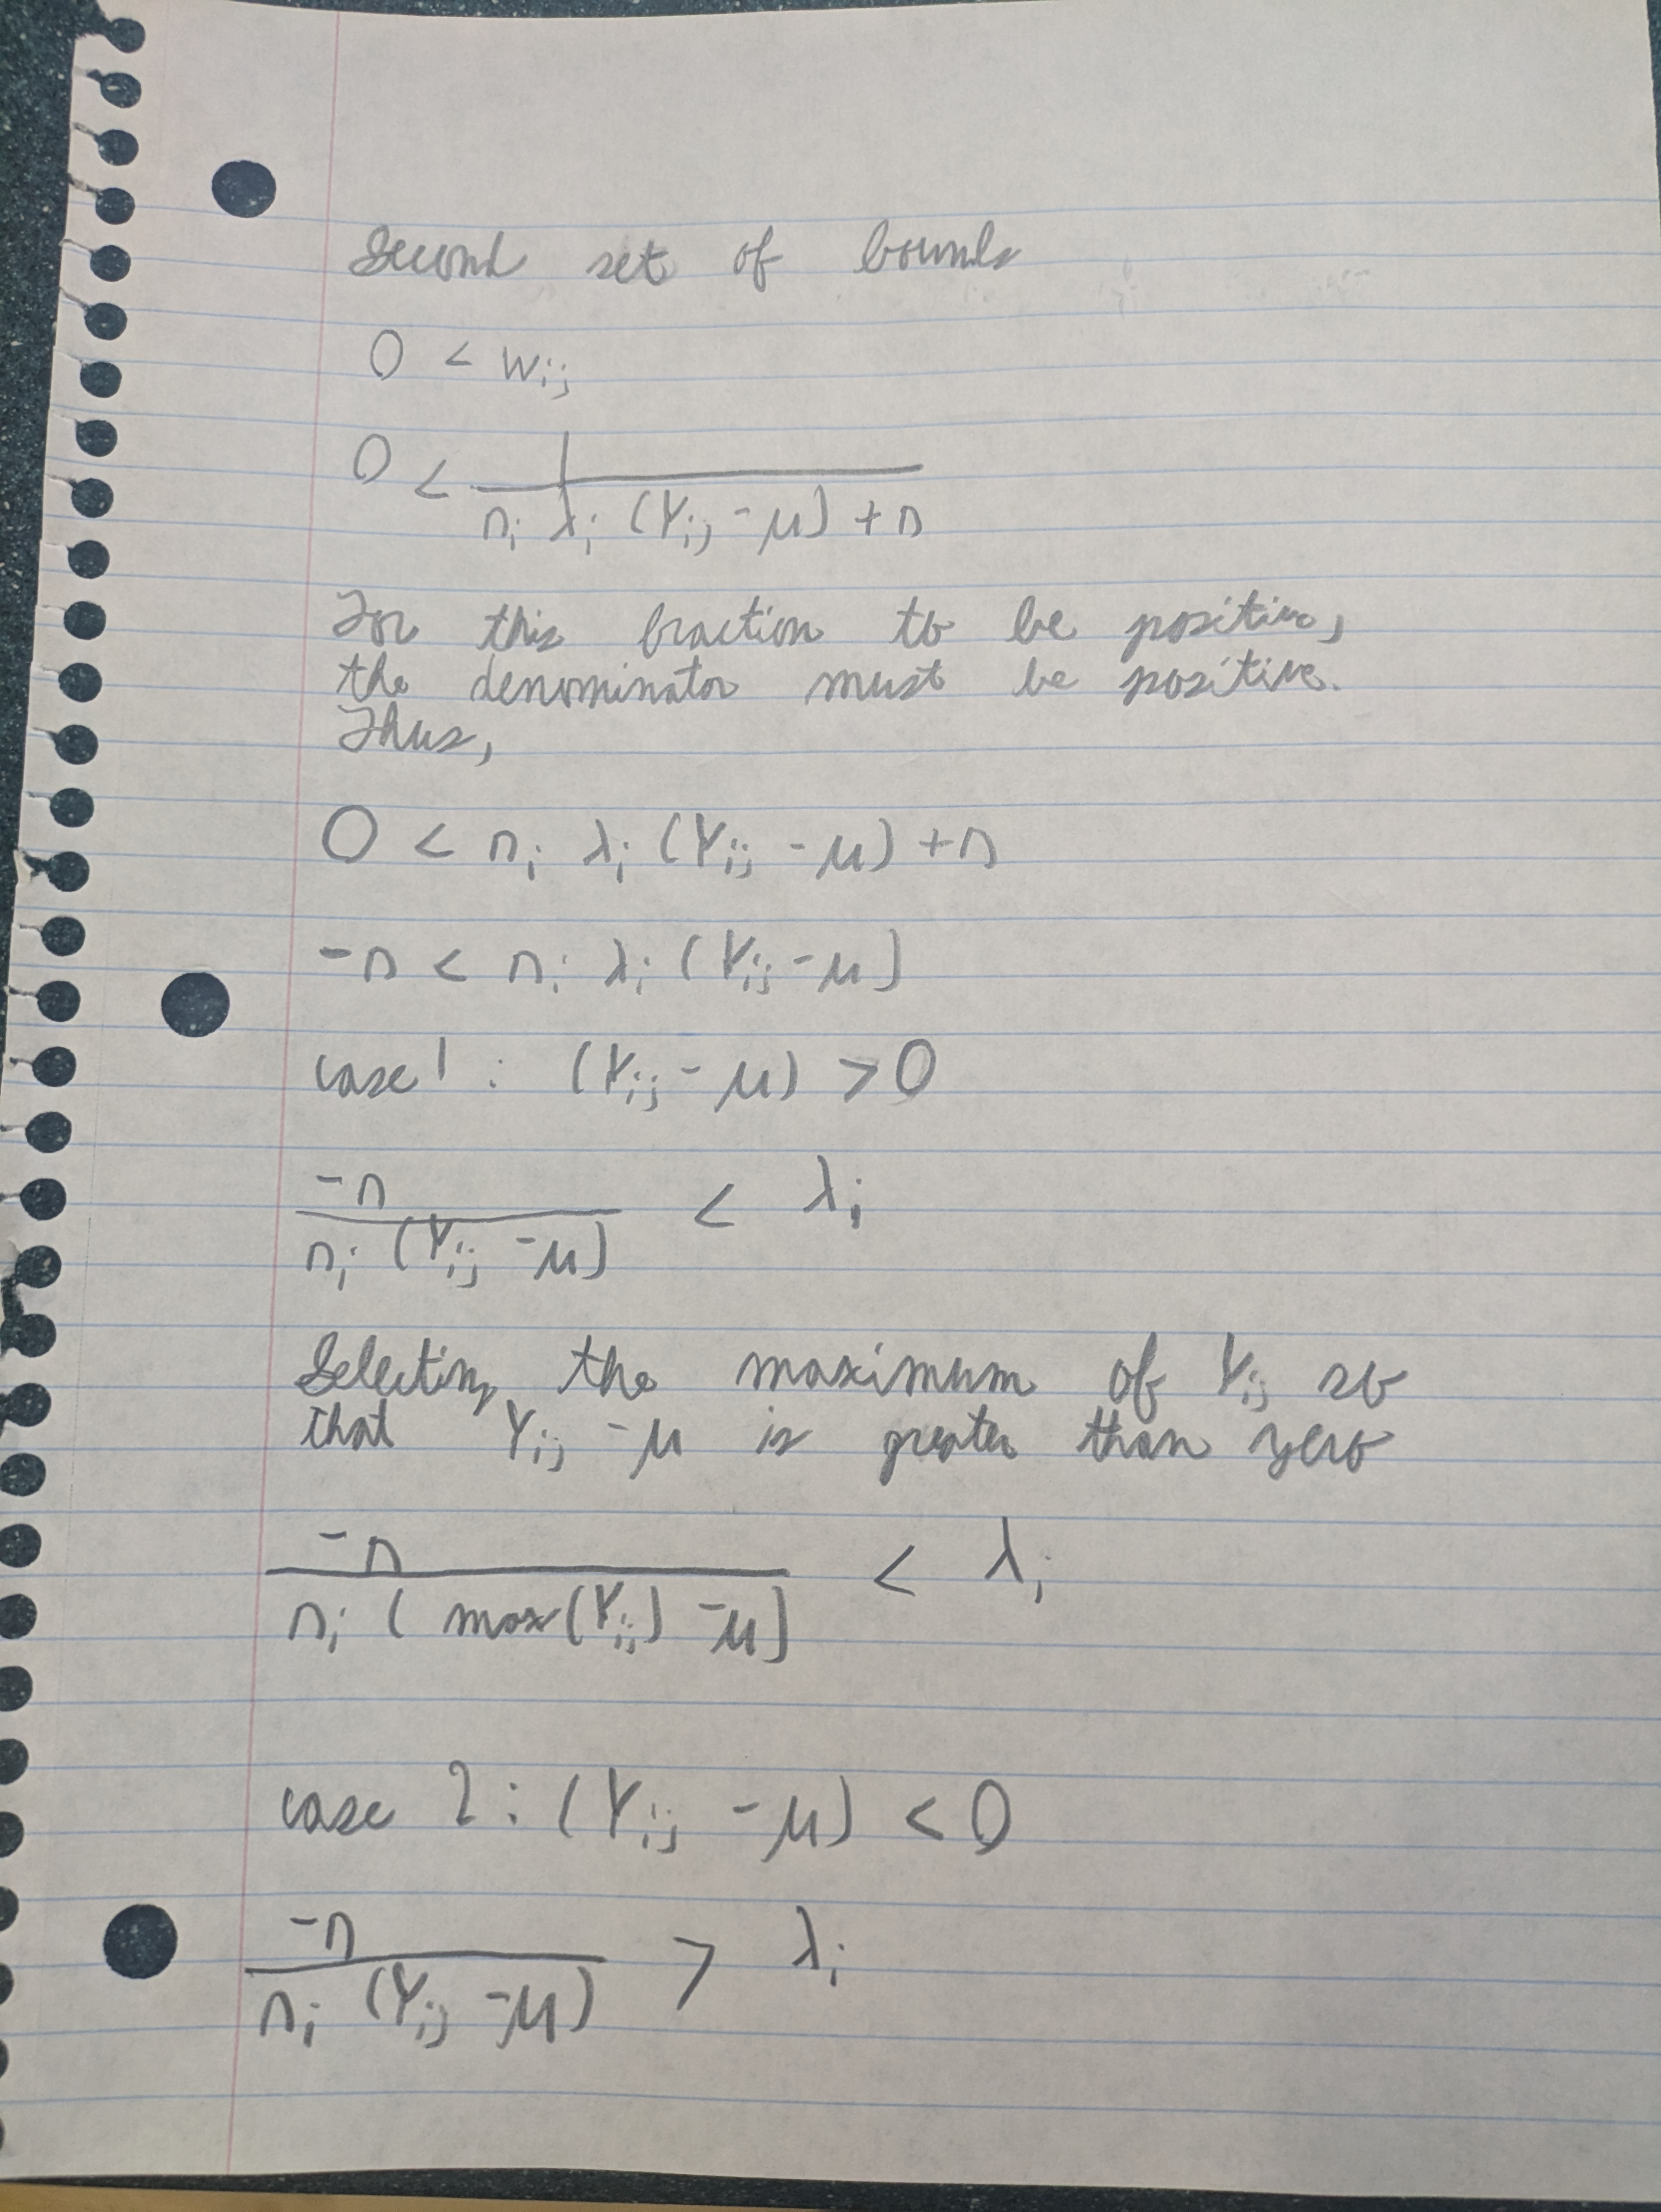 Second set of bounds
0 < w_ij
0 < 1 / (n_i λ_i (Y_ij - μ) + n)
For this fraction to be positive,
the denominator must be positive.
Thus,
0 < n_i λ_i (Y_ij - μ) + n
-n < n_i λ_i (Y_ij - μ)
case 1 : (Y_ij - μ) > 0
-n / (n_i (Y_ij - μ)) < λ_i
Selecting the maximum of Y_ij so
that Y_ij - μ is greater than zero
-n / (n_i (max(Y_ij) - μ)) < λ_i
case 2 : (Y_ij - μ) < 0
-n / (n_i (Y_ij - μ)) > λ_i